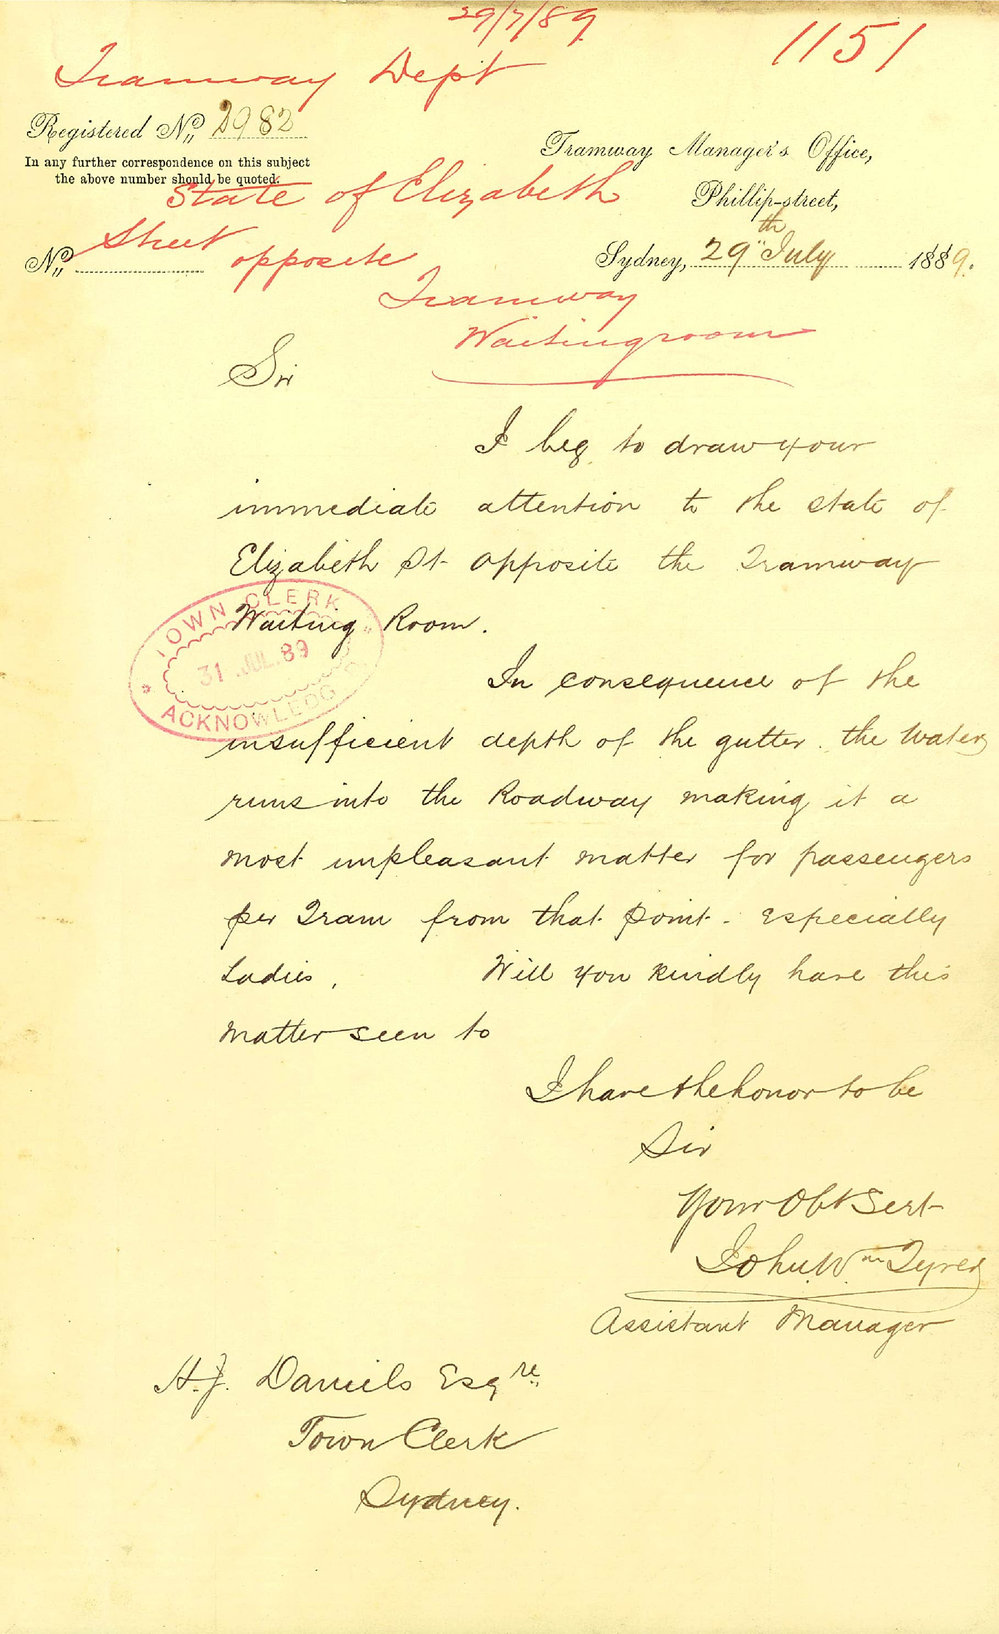 29/7/89
1151
Tramway Dept
Registered No. 2982
In any further correspondence on this subject
the above number should be quoted.
State of Elizabeth
Street opposite
Tramway
Waitingroom
No.
Tramway Manager's Office,
Phillip-street,
Sydney, 29th July 1889.
Sir
I beg to draw your
immediate attention to the state of
Elizabeth St opposite the Tramway
Waiting Room.
TOWN CLERK
31 JUL 89
ACKNOWLEDGED
In consequence of the
insufficient depth of the gutter. the water
runs into the Roadway making it a
most unpleasant matter for passengers
per Tram from that point. especially
Ladies. Will you kindly have this
matter seen to
I have the honor to be
Sir
Your Obt Sert
John Wm
Assistant Manager
H.J. Daniels Esqre.
Town Clerk
Sydney.